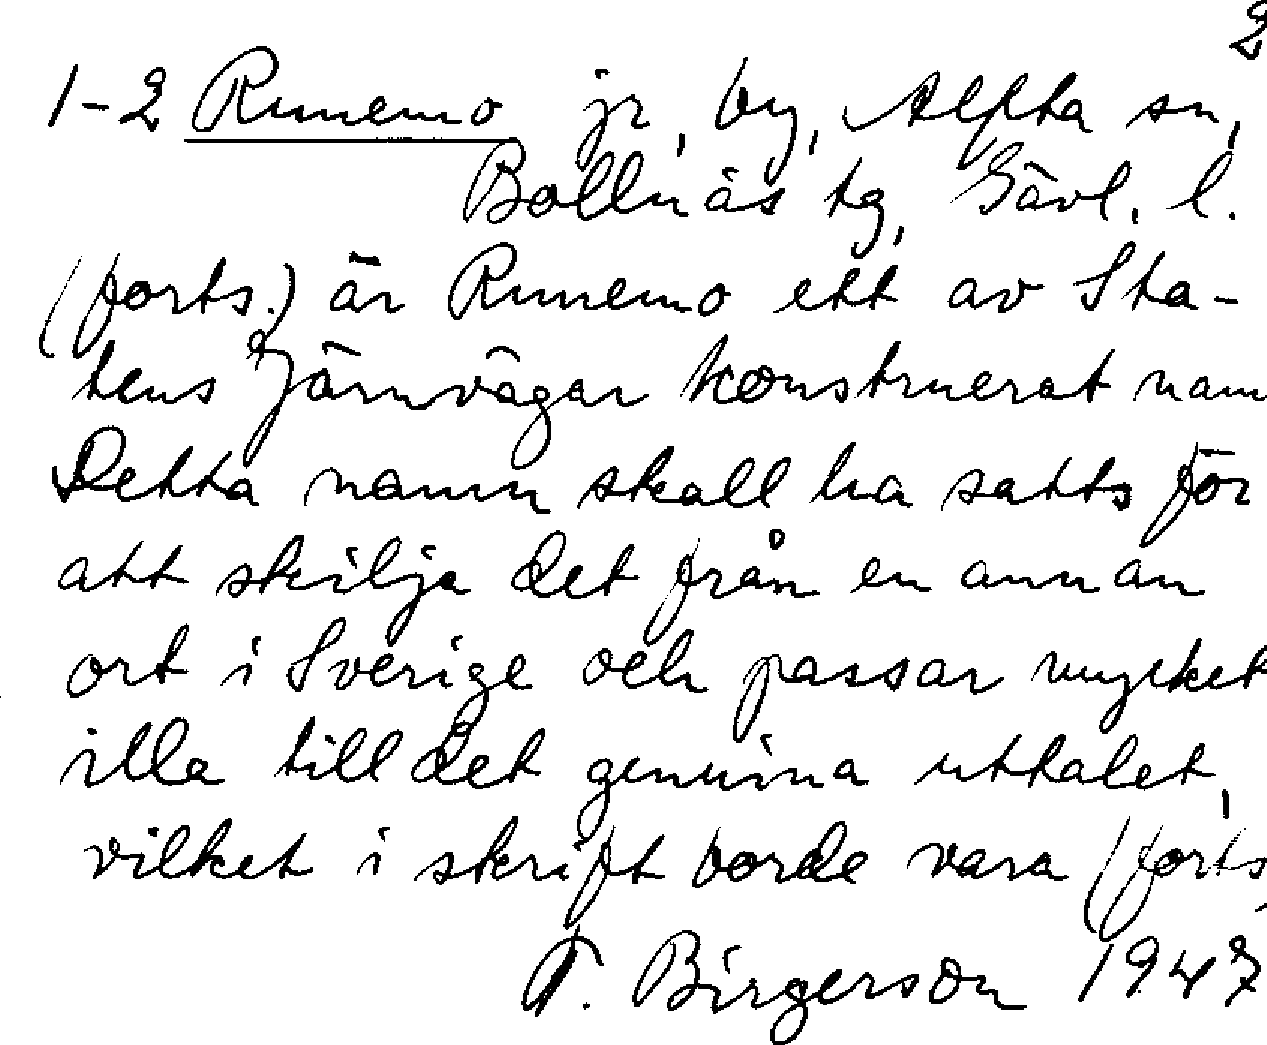 2
1-2 Runemo jr, by, Alfta sn,
Bollnäs tg, Gävl. l.
(forts.) är Runemo ett av Sta-
tens Järnvägar konstruerat nam
Detta namn skall ha satts för
att skilja det från en annan
ort i Sverige och passar mycket
illa till det genuina uttalet,
vilket i skrift borde vara (forts
T. Birgerson 1947